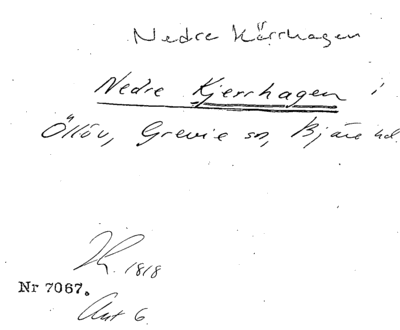 Nedre Körrhagen
Nedre Kjerrhagen i
Öllöv, Grevie sn, Bjäre hd.
1818
Nr 7067.
Akt 6